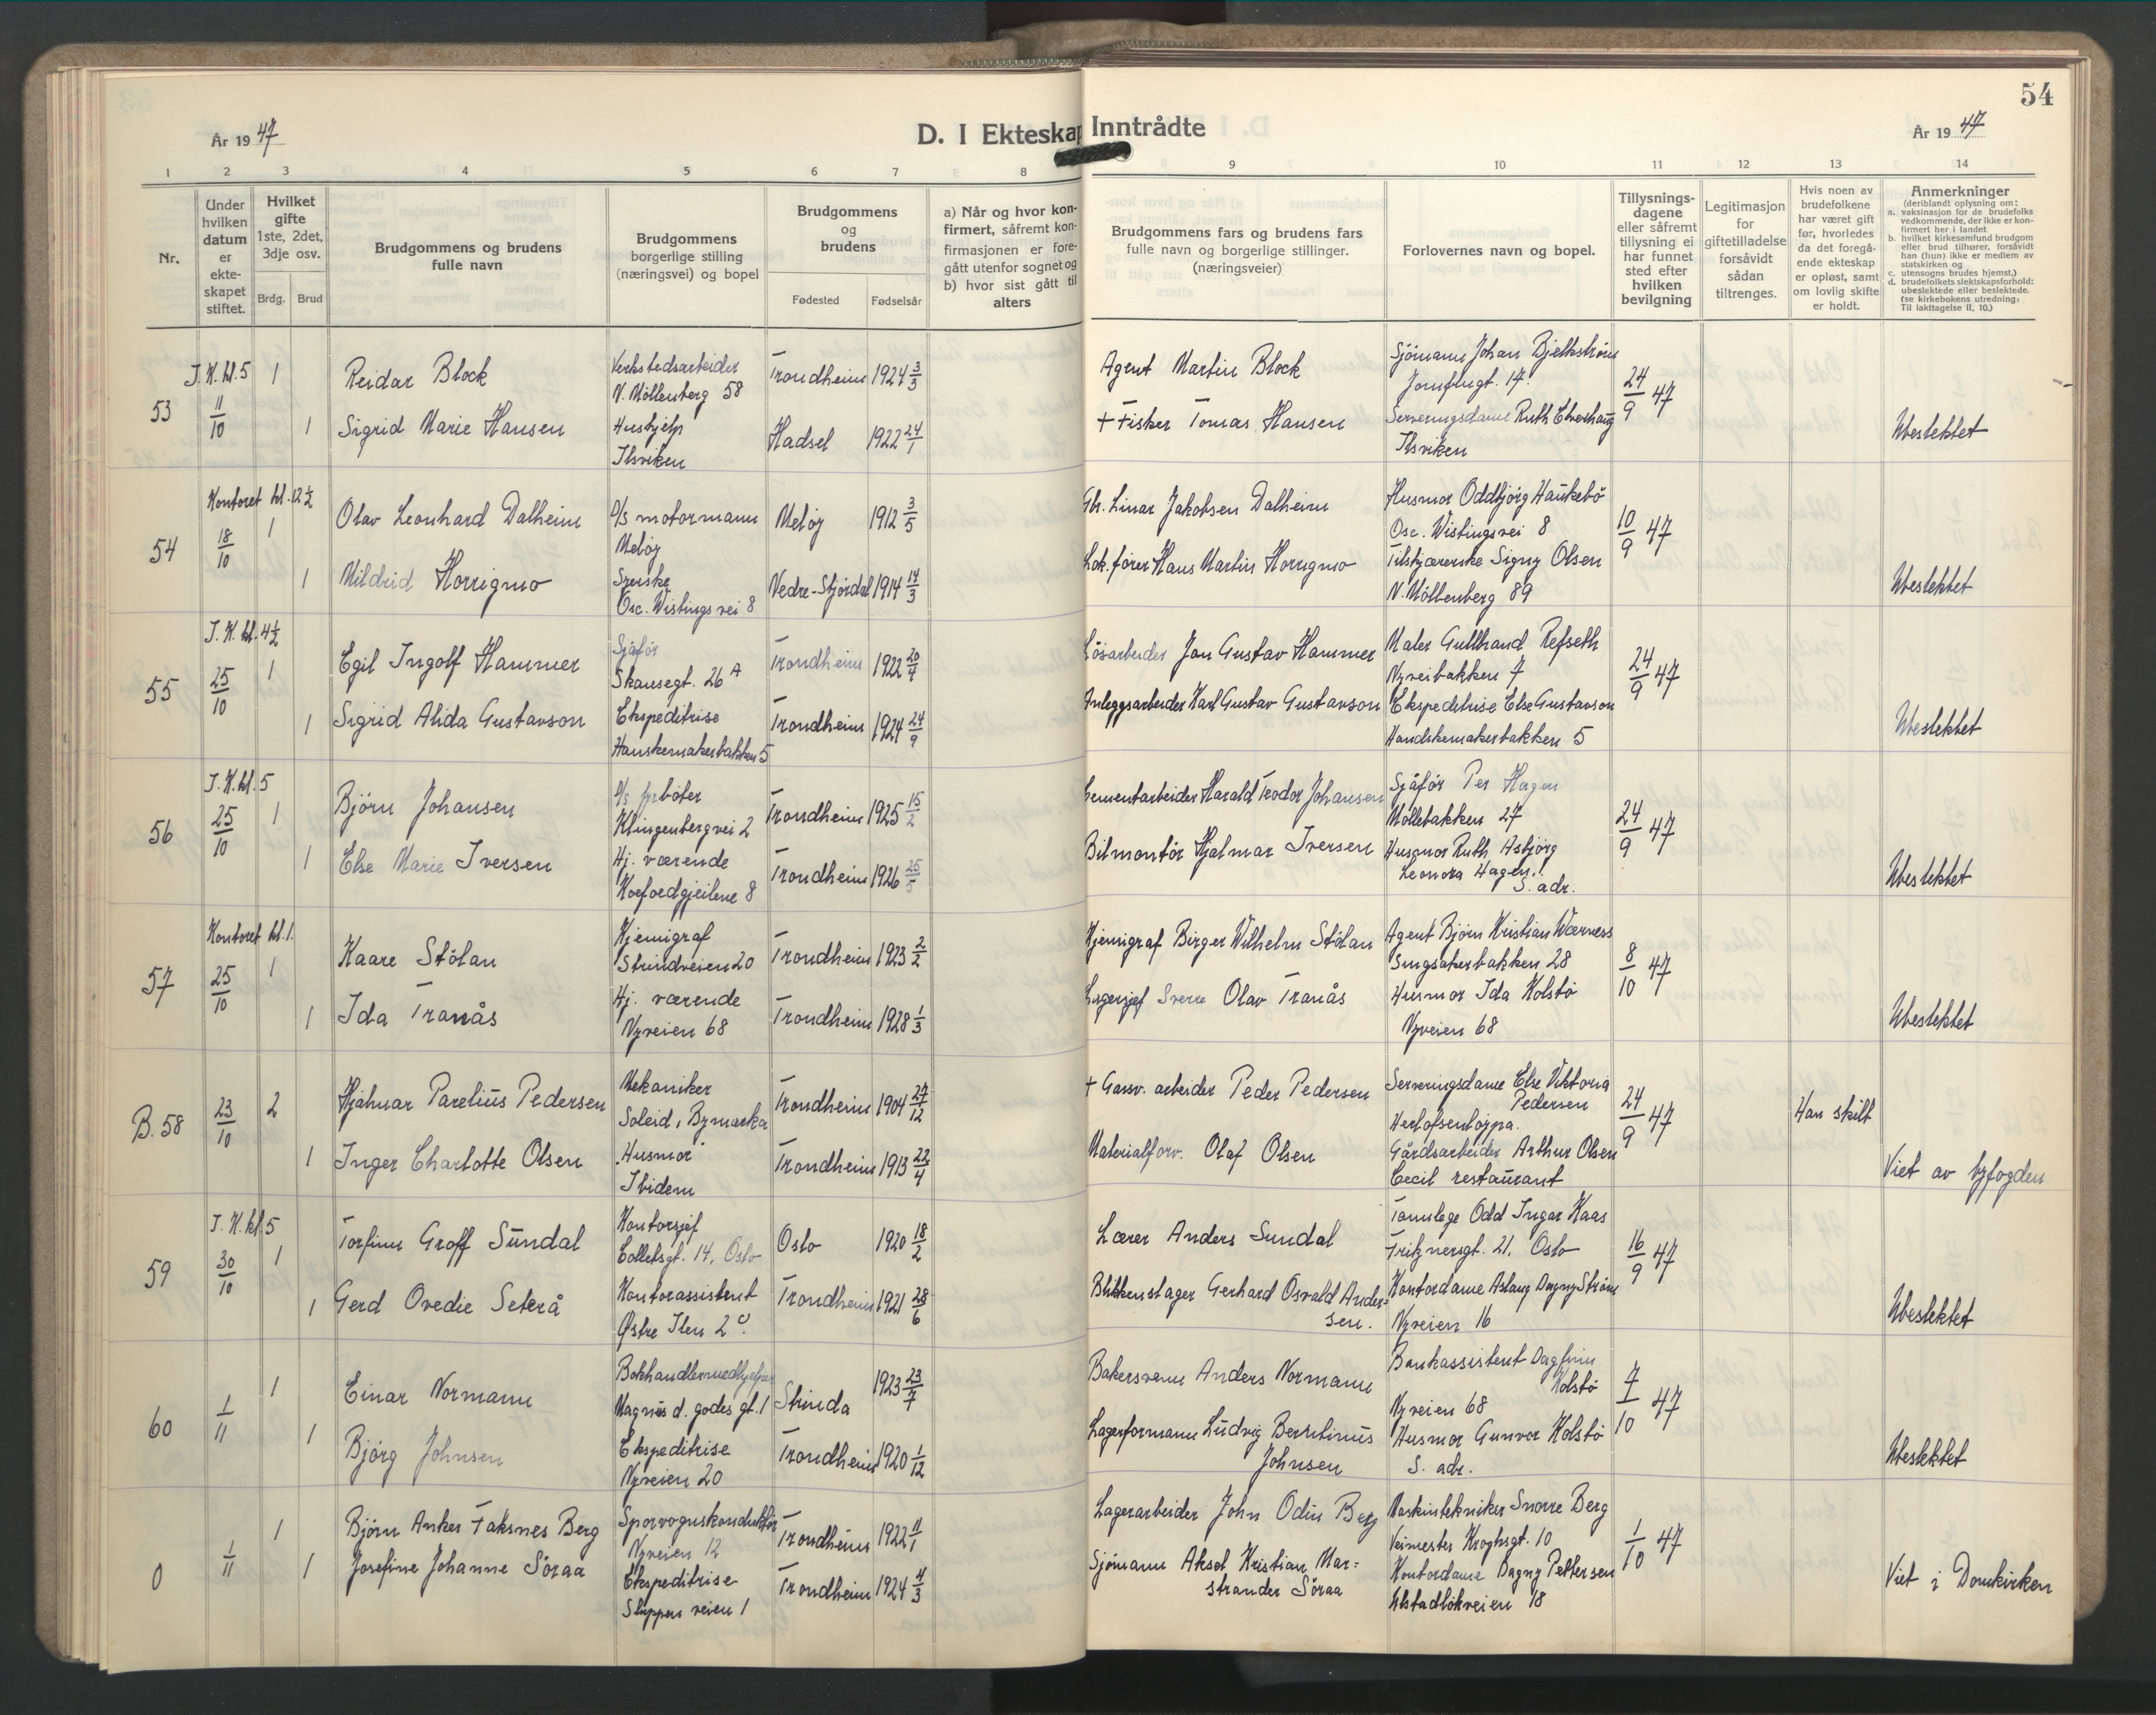 54
År 1947
D. I Ekteskap Inntrådte
År 1947
1 2 3 4 5 6 7 8 9 10 11 12 13 14
Nr.
Under hvilken datum er ekte-skapet stiftet.
Hvilket gifte 1ste, 2det, 3dje osv.
Brdg. Brud
Brudgommens og brudens fulle navn
Brudgommens borgerlige stilling (næringsvei) og bopel
Brudgommens og brudens
Fødested Fødselsår
a) Når og hvor kon-firmert, såfremt kon-firmasjonen er fore-gått utenfor sognet og
b) hvor sist gått til alters
Brudgommens fars og brudens fars fulle navn og borgerlige stillinger. (næringsveier)
Forlovernes navn og bopel.
Tillysnings-dagene eller såfremt tillysning ei har funnet sted efter hvilken bevilgning
Legitimasjon for giftetilladelse forsåvidt sådan tiltrenges.
Hvis noen av brudefolkene har været gift før, hvorledes da det foregå-ende ekteskap er opløst, samt om lovlig skifte er holdt.
Anmerkninger
(deriblandt oplysning om:
a. vaksinasjon for de brudefolks vedkommende, der ikke er kon-firmert her i landet.
b. hvilket kirkesamfund brudgom eller brud tilhører, forsåvidt han (hun) ikke er medlem av statskirken og
c. utensogns brudes hjemst.)
d. brudefolkets slektskapsforhold: ubeslektede eller beslektede.
(se kirkebokens utredning: Til iakttagelse II, 10.)
53 I.K. kl. 5 11/10 1 Reidar Block Verkstedsarbeider N. Möllenberg 58 Trondheim 1924 3/3 Agent Martin Block Sjömann Johan Bjelkström Jomfrugt. 14. 24/9 47
1 Sigrid Marie Hansen Hushjelp Ilsviken Hadsel 1922 24/1 + Fisker Tomas Hansen Serveringsdame Ruth Elverhaug Ilsviken Ubeslektet
54 Kontoret kl. 12 1/2 18/10 1 Olav Leonhard Dalheim D/s motormann Melöy Melöy 1912 3/5 Gbr. Einar Jakobsen Dalheim Husmor Oddbjörg Haukebö Osc. Wistingsvei 8 10/9 47
1 Mildrid Horrigmo Syerske Osc. Wistings vei 8 Nedre-Stjördal 1914 14/3 Lok.förer Hans Martin Horrigmo Tilskjærerske Signy Olsen N. Möllenberg 89 Ubeslektet
55 I.K. kl. 4 1/2 25/10 1 Egil Ingolf Hammer Sjåför Skansegt. 26 A Trondheim 1922 20/4 Lösarbeider Jan Gustav Hammer Maler Gulbrand Refseth Nyveibakken 7 24/9 47
1 Sigrid Alida Gustavson Ekspeditrise Hanskemakerbakken 5 Trondheim 1924 24/9 Anleggsarbeider Karl Gustav Gustavson Ekspeditrise Else Gustavson Handskemakerbakken 5 Ubeslektet
56 I.K. kl. 5 25/10 1 Björn Johansen D/s fyrböter Klingenbergvei 2 Trondheim 1925 15/2 Cementarbeider Harald Teodor Johansen Sjåför Per Hagen Möllebakken 27 24/9 47
1 Else Marie Iversen Hj. værende Koefoedgjeilene 8 Trondheim 1926 25/5 Bilmontör Hjalmar Iversen Husmor Ruth Asbjörg Leonora Hagen. S. adr. Ubeslektet
57 Kontoret kl. 1. 25/10 1 Kaare Stölan Kjemigraf Strindveien 20 Trondheim 1923 2/2 Kjemigraf Birger Wilhelm Stölan Agent Björn Kristian Wærness Singsakerbakken 28 8/10 47
1 Ida Tranås Hj. værende Nyveien 68 Trondheim 1928 1/3 Lagersjef Sverre Olav Tranås Husmor Ida Holstö Nyveien 68 Ubeslektet
B. 58 23/10 2 Hjalmar Parelius Pedersen Mekaniker Soleid, Bymarka Trondheim 1904 27/12 + Garv. arbeider Peder Pedersen Serveringsdame Else Viktoria Pedersen 24/9 47 Han skilt
1 Inger Charlotte Olsen Husmor Ibidem Trondheim 1913 22/4 Materialforv. Olaf Olsen Gårdsarbeider Arthur Olsen Cecil restaurant Viet av byfogden
59 I.K. kl. 5 30/10 1 Torfinn Groff Sundal Kontorsjef Colletsgt. 14, Oslo Oslo 1920 18/2 Lærer Anders Sundal Tannlege Odd Ingar Kaas Fritznersgt. 21, Oslo 16/9 47
1 Gerd Ovedie Seterå Kontorassistent Østre Ilen 2 c. Trondheim 1921 28/6 Blikkenslager Gerhard Osvald Ander=sen. Kontordame Aslaug Dagny Ström Nyveien 16 Ubeslektet
60 1/11 1 Einar Normann Bokhandlermedhjelper Magnus d. godes gt. 1 Strinda 1923 23/7 Bakersvenn Anders Normann Bankassistent Dagfinn Holstö Nyveien 68 7/10 47
1 Björg Johnsen Ekspeditrise Nyveien 20 Trondheim 1920 1/12 Lagerformann Ludvig Berntinus Johnsen Husmor Gunvor Holstö S. adr. Ubeslektet
0 1/11 1 Björn Anker Faksnes Berg Sporvognskonduktör Nyveien 12 Trondheim 1922 11/1 Lagerarbeider John Odin Berg Maskintekniker Snorre Berg Veimester Kroghsgt. 10 1/10 47
1 Josefine Johanne Söraa Ekspeditrise Sluppen veien 1 Trondheim 1924 4/3 Sjömann Aksel Kristian Mar=strander Söraa Kontordame Dagny Pettersen Ulstadlökveien 18 Viet i Domkirken